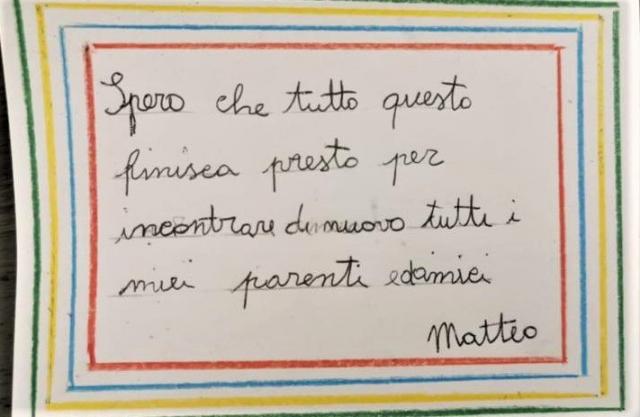 Spero che tutto questo
finisca presto per
incontrare di nuovo tutti i
miei parenti ed amici
Matteo